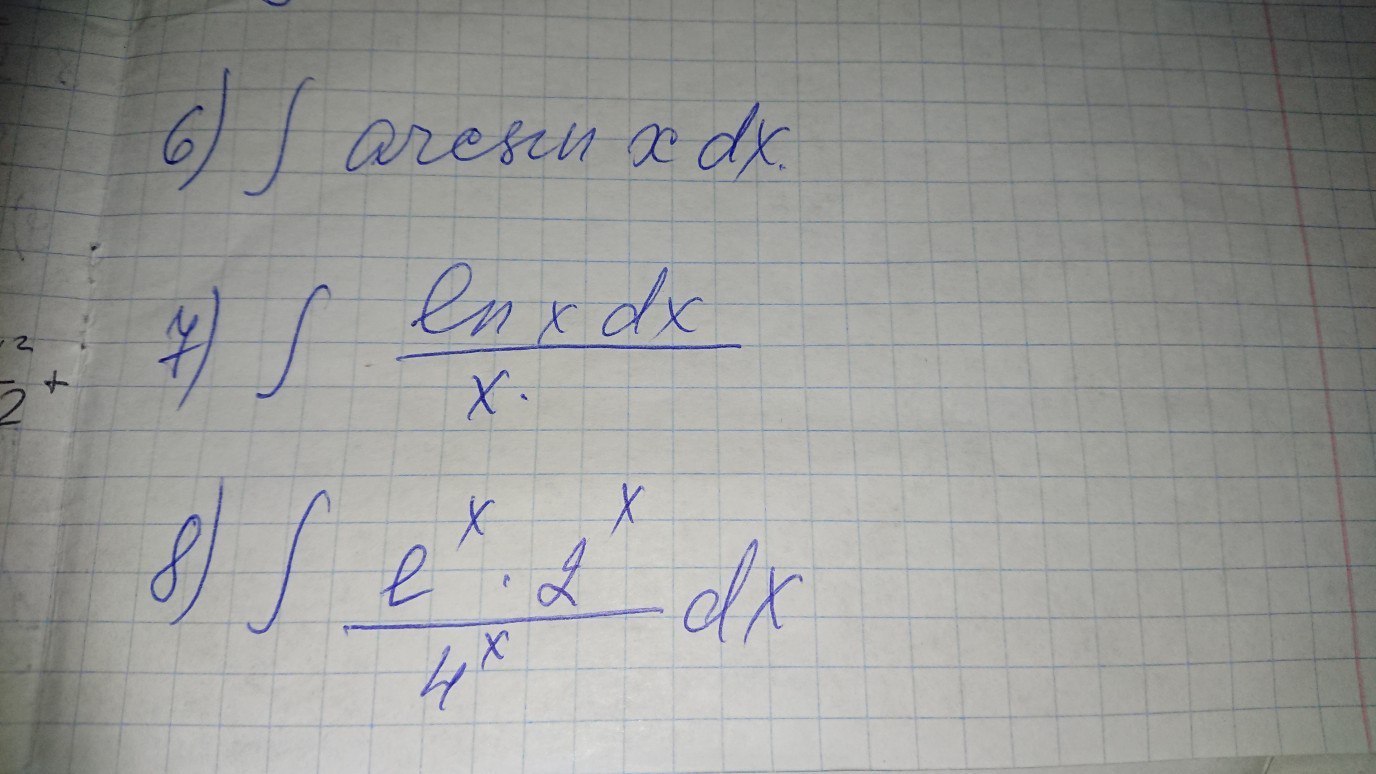 6) ∫ arcsin x dx.
7) ∫ ln x dx
x.
8) ∫ e^x · 2^x dx
4^x
2
2 +